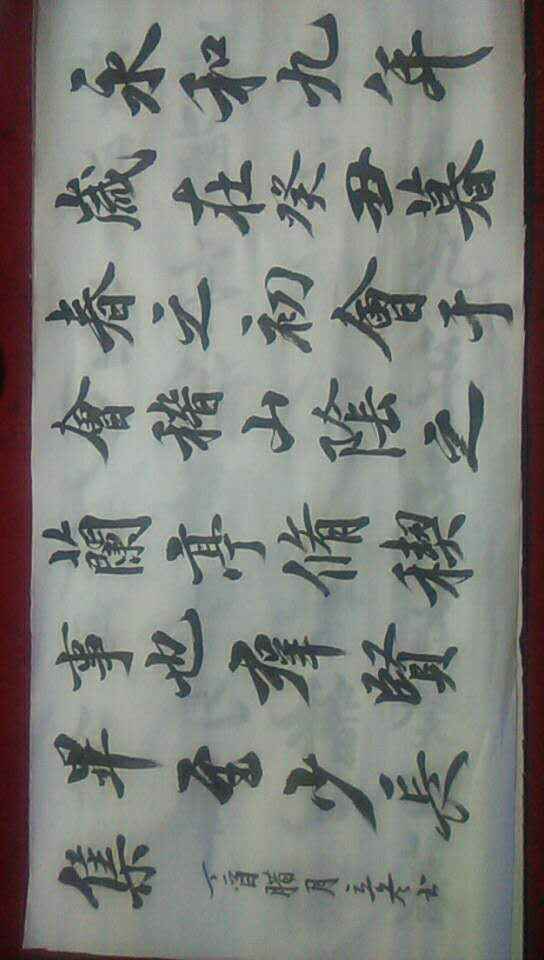 永和九年
歲在癸丑暮
春之初會于
會稽山陰之
蘭亭脩禊
事也群賢
畢至少長
集
丁酉腊月书